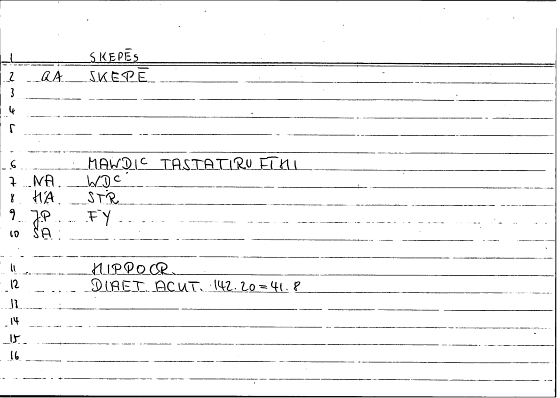 1 SKEPĒS
2 GA SKEPĒ
3
4
5
6 MAWDIC TASTATIRU FIHI
7 NA WDC
8 HA STR
9 JP FY
10 SA
11 HIPPOCR.
12 DIAET. ACUT. 142.20=41.8
13
14
15
16